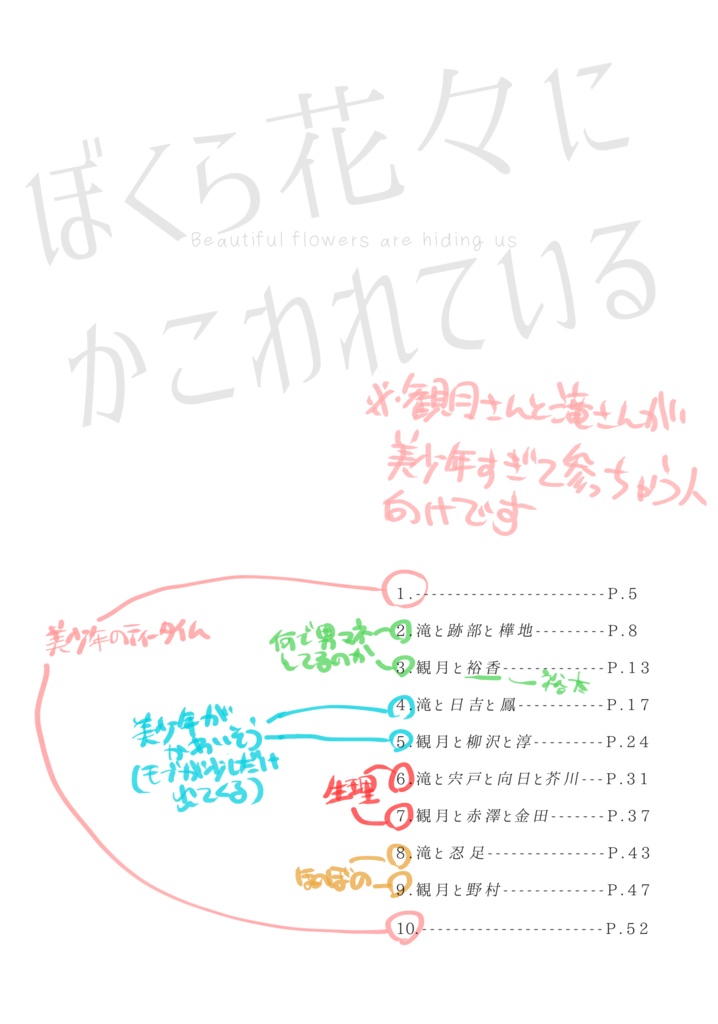 ぼくら花々に
Beautiful flowers are hiding us
かこわれている
※観月さんと滝さんが
美少年すぎて参っちゃう人
向けです
1.------------------------P.5
美少年のティータイム
2.滝と跡部と樺地---------P.8
何で男マネ
してるのか
3.観月と裕香-------------P.13
裕太
4.滝と日吉と鳳-----------P.17
美少年が
かわいそう
(モブが少しだけ
出てくる)
5.観月と柳沢と淳---------P.24
6.滝と宍戸と向日と芥川---P.31
生理
7.観月と赤澤と金田-------P.37
8.滝と忍足---------------P.43
ほのぼの
9.観月と野村-------------P.47
10.-----------------------P.52